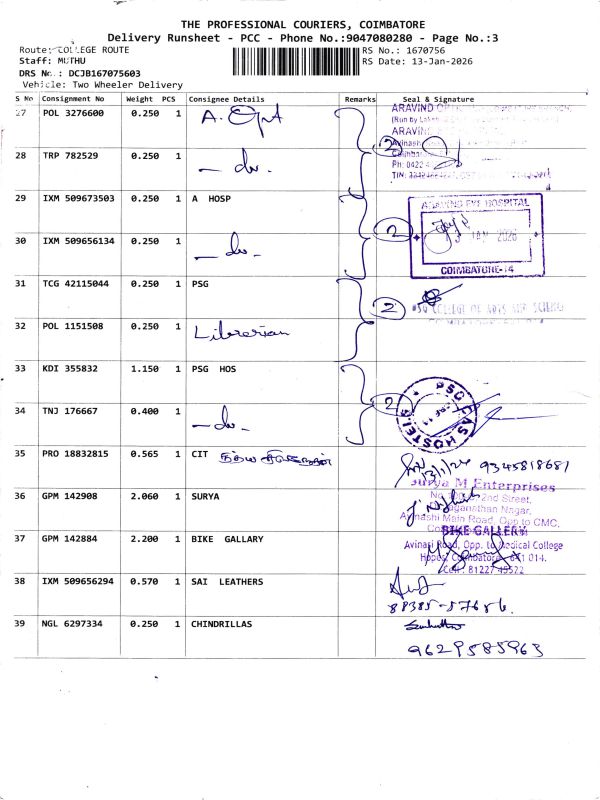 THE PROFESSIONAL COURIERS, COIMBATORE
Delivery Runsheet - PCC - Phone No.:9047080280 - Page No.:3
Route: COLLEGE ROUTE
RS No.: 1670756
Staff: MUTHU
RS Date: 13-Jan-2026
DRS No.: DCJB167075603
Vehicle: Two Wheeler Delivery
S No Consignment No Weight PCS Consignee Details Remarks Seal & Signature
27 POL 3276600 0.250 1 A. Opt
ARAVIND
28 TRP 782529 0.250 1 - do. - 2
29 IXM 509673503 0.250 1 A HOSP
ARAVIND EYE HOSPITAL
30 IXM 509656134 0.250 1 - do - 2
13 JAN 2026
COIMBATORE-14
31 TCG 42115044 0.250 1 PSG 2
PSG COLLEGE OF ARTS AND SCIENCE
32 POL 1151508 0.250 1 Librerian
33 KDI 355832 1.150 1 PSG HOS
34 TNJ 176667 0.400 1 - do - 2
PSG CAS HOSTELS
35 PRO 18832815 0.565 1 CIT
13/1/26 9345818681
36 GPM 142908 2.060 1 SURYA
Surya M Enterprises
2nd Street,
Nagar,
Avinashi Main Road, Opp to CMC,
37 GPM 142884 2.200 1 BIKE GALLARY
BIKE GALLERY
Avinasi Road, Opp. to Medical College
Hopes, Coimbatore - 641 014.
Cell : 81227 45522
38 IXM 509656294 0.570 1 SAI LEATHERS
88385-57686.
39 NGL 6297334 0.250 1 CHINDRILLAS
9629585963